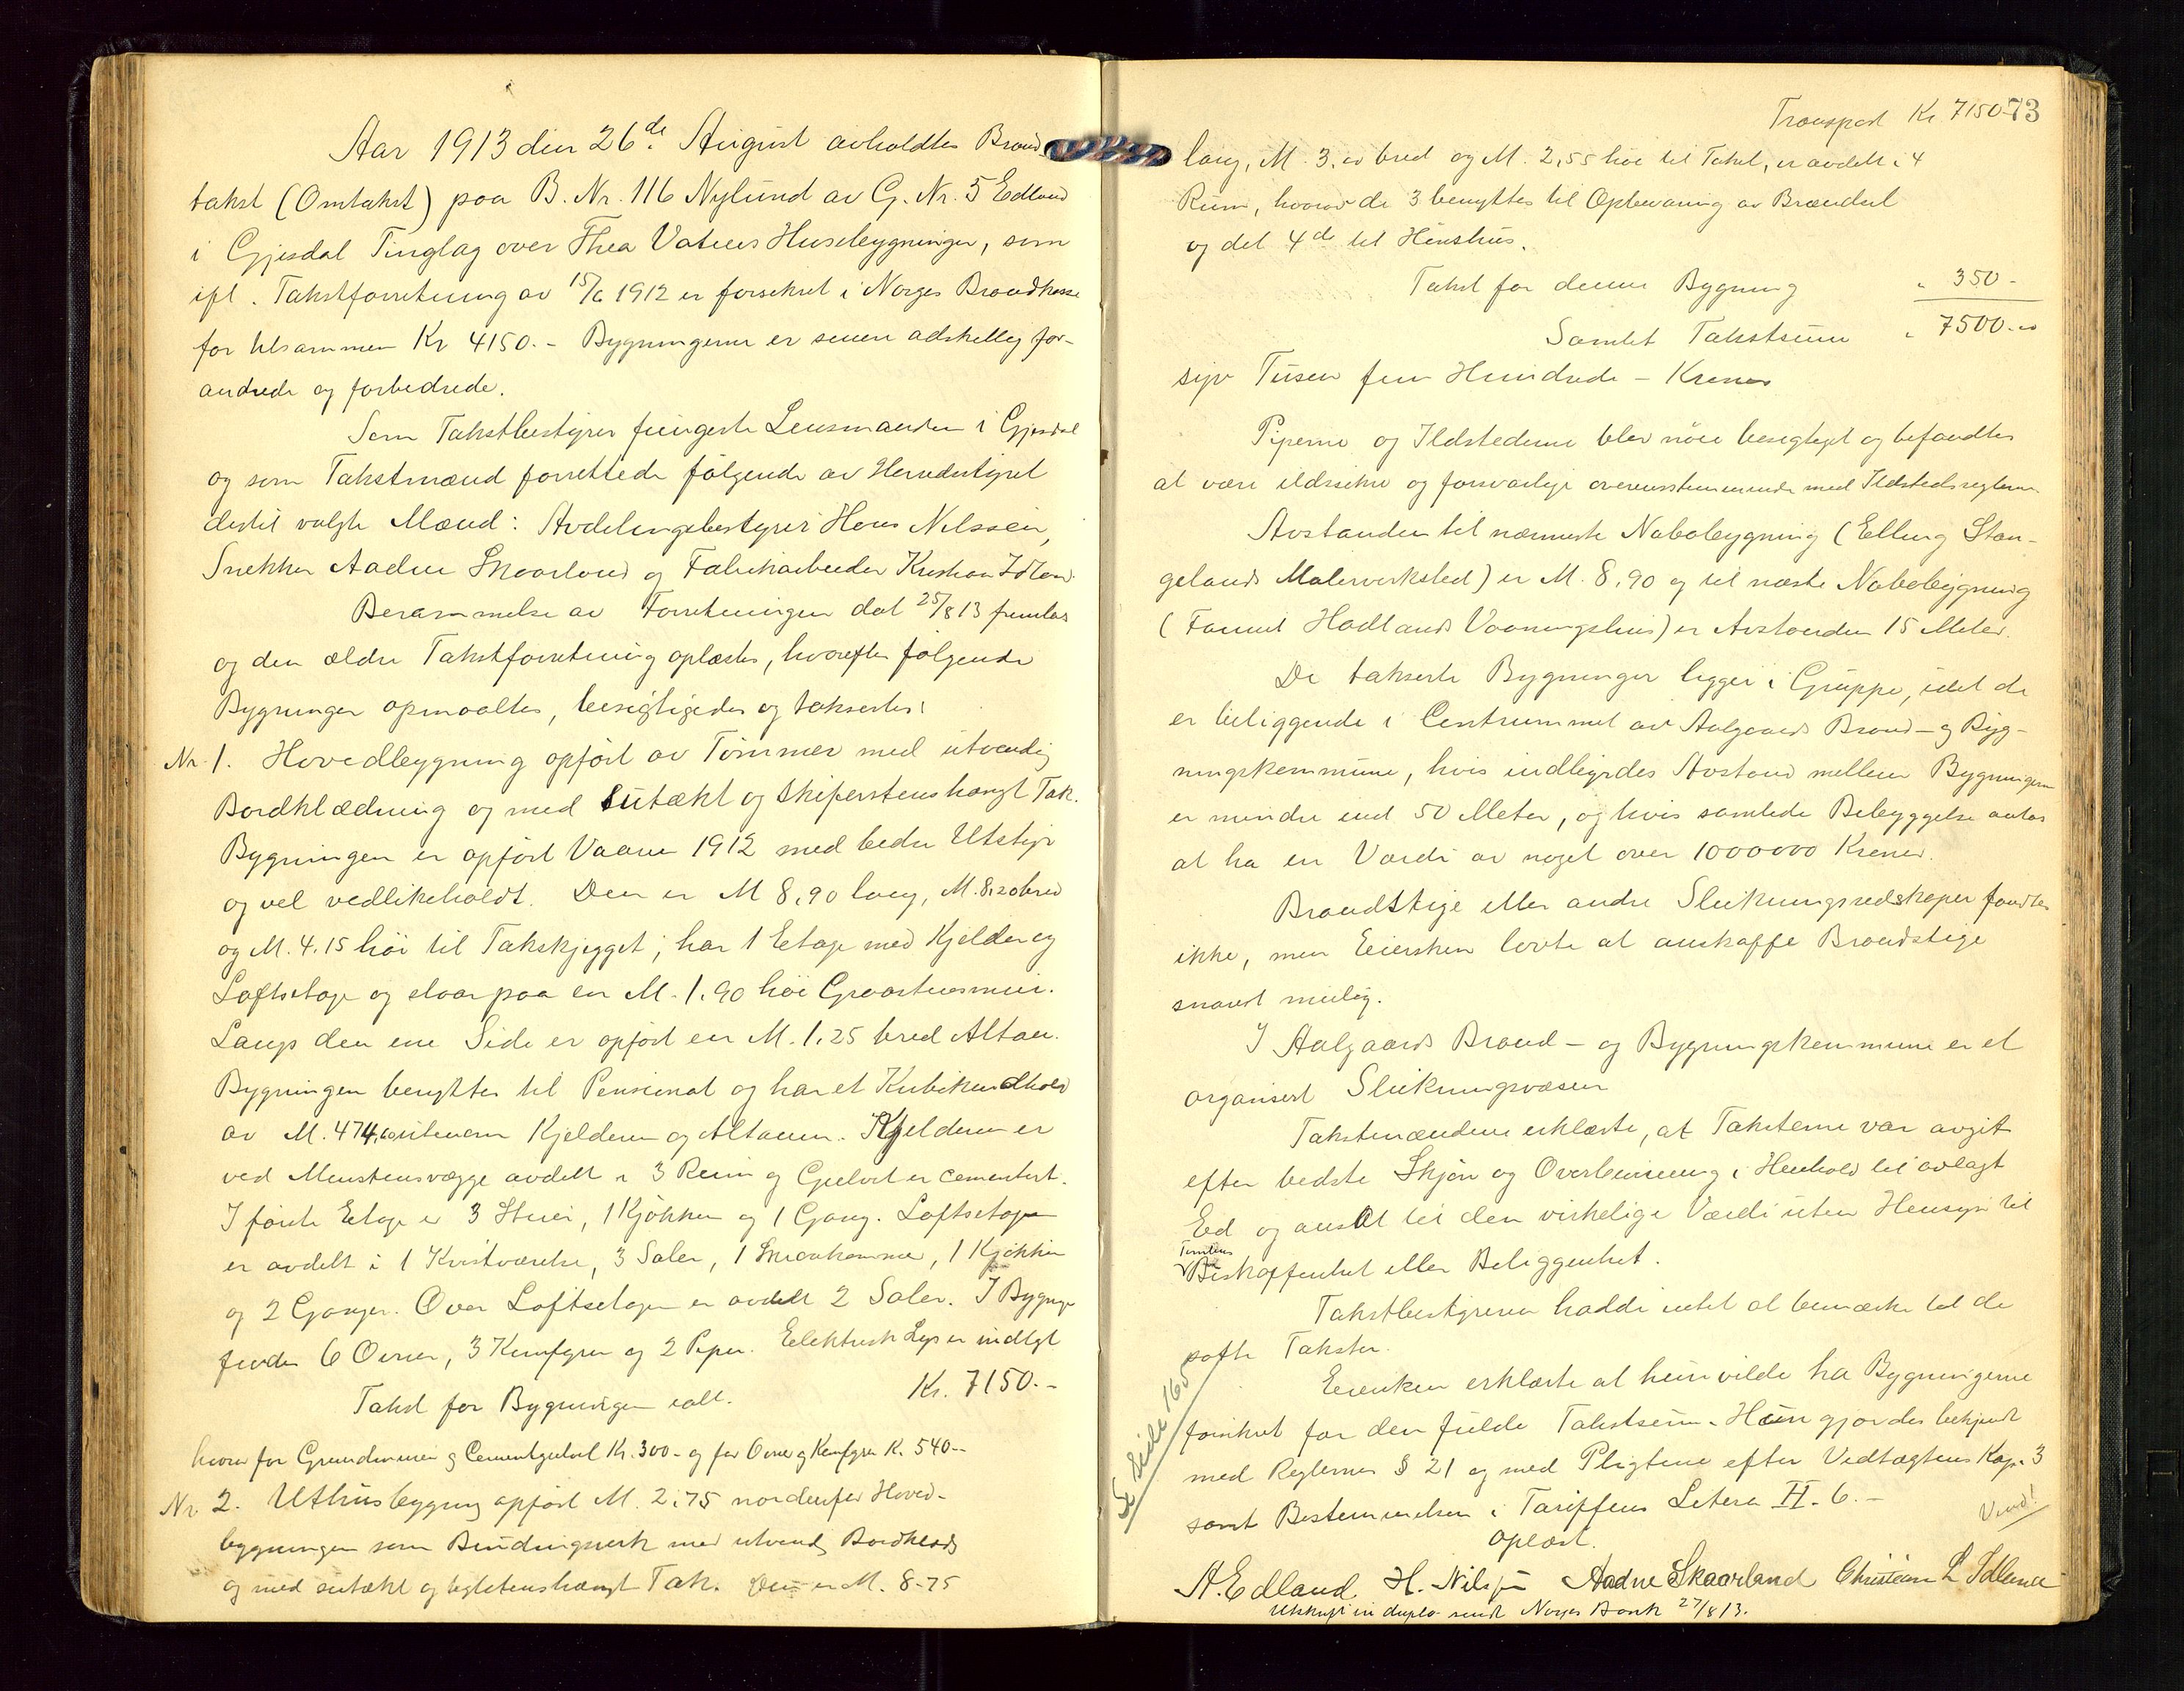 Aar 1913 den 26de August avholdtes Brand-
takst (Omtakst) paa B. Nr. 116 Nylund av G. Nr. 5 Edland
i Gjesdal Tinglag over Thea Vatnes Husebygninger, som
ifl. Takstforretning av 15/6 1912 er forsikret i Norges Brandkasse
for tilsammen Kr 4150.- Bygningerne er senere adskillig for-
andrede og forbedrede.
Som Takstbestyrer fungerte Lensmanden i Gjesdal
og som Takstmænd forrettede følgende av Herredstyret
dertil valgte Mænd: Avdelingsbestyrer Hans Nilssen,
Snekker Aadne Skaarland og Fabrikarbeider Kristian Idland.
Berammelse av Forretningen dat 25/8 13 fremlas
og den ældre Takstforretning oplæstes, hvorefter følgende
Bygninger opmaaltes, besigtigedes og taksertes:
Nr. 1. Hovedbygning opført av Tømmer med utvendig
Bordklædning og med sutækt og skiferstenshængt Tak.
Bygningen er opført Vaaren 1912 med bedre Utstyr
og vel vedlikeholdt. Den er M 8,90 lang, M. 8,20 bred
og M. 4.15 høi til Takskjegget; har 1 Etage med Kjelder og
Loftsetage og staar paa en M. 1.90 høi Graastensmur.
Langs den ene Side er opført en M. 1.25 bred Altan.
Bygningen benyttes til Pensionat og har et Kubikindhold
av M. 474,60 utenom Kjelderen og Altanen. Kjelderen er
ved Murstensvægge avdelt i 3 Rum og Gulvet er cementert.
I første Etage er 3 Stuer, 1 Kjøkken og 1 Gang. Loftsetagen
er avdelt i 1 Kvistværelse, 3 Saler, 1 kammer, 1 Kjøkken
og 2 Ganger. Over Loftsetagen er avdelt 2 Saler. I Bygngen
findes 6 Ovner, 3 Komfyrer og 2 Piper. Elektrisk Lys er indlgt
Takst for Bygningen ialt. Kr. 7150.-
hvorav for Grundmuren og Cementgulvet Kr. 300- og for Ovne og Komfyrer K. 540--
Nr 2. Uthusbygning opført M. 2.75 nordenfor Hoved-
bygningen som Bindingverk med utvendig Bordklædn
og med sutækt og teglstenshængt Tak. Den er M. 8-75
Transport Kr 7150-
73
lang, M. 3.00 bred og M. 2,55 høi til Taket, er avdelt i 4
Rum, hvorav de 3 benyttes til Opbevaring av Brændsel
og det 4de til Hønshus.
Takst for denne Bygning " 350-
Samlet Takstsum " 7500.00
syv Tusen fem Hundrede - Kroner
Piperne og Ildstederne blev nøie besigtiget og befandtes
at være ildssikre og forsvarlige overensstemmende med Ildstedsreglern.
Avstanden til nærmeste Nabobygning (Elling Stan-
gelands Malerverksted) er M. 8,90 og til næste Nabobygning
( Hadlands Vaaningshus) er Avstanden 15 Meter.
De takserte Bygninger ligger i Gruppe, idet de
er beliggende i Centrummet av Aalgaards Brand- og Byg-
ningskommune, hvis indbyrdes Avstand mellem Bygningern
er mindre end 50 Meter, og hvis samlede Bebyggelse antas
at ha en Værdi av noget over 1000000 Kroner.
Brandstige eller andre Slukningsredskaper fandtes
ikke, men Eiersken lovte at anskaffe Brandstige
snarest mulig.
I Aalgaards Brand- og Bygningskommune er et
organisert Slukningsvæsen
Takstmændene erklærte, at Taksterne var avgit
efter bedste Skjøn og Overbevisning i Henhold til avlagt
Ed og ansat til den virkelige Værdi uten Hensyn til
Tomtens
Beskaffenhet eller Beliggenhet.
Takstbestyreren hadde intet at bemærke til de
satte Takster.
Eiersken erklærte at hun vilde ha Bygningerne
forsikret for den fulde Takstsum. Hun gjordes bekjendt
med Reglernes § 21 og med Pligtene efter Vedtægtens Kap. 3
samt Bestemmelsen i Tariffens Litera II. 6.-
Oplæst.
Vend!
A. Edland. H. Nilssen Aadne Skaarland Christian L Idland
Utskrift in duplo sendt Norges Brank 27/8 13.
Se Side 165